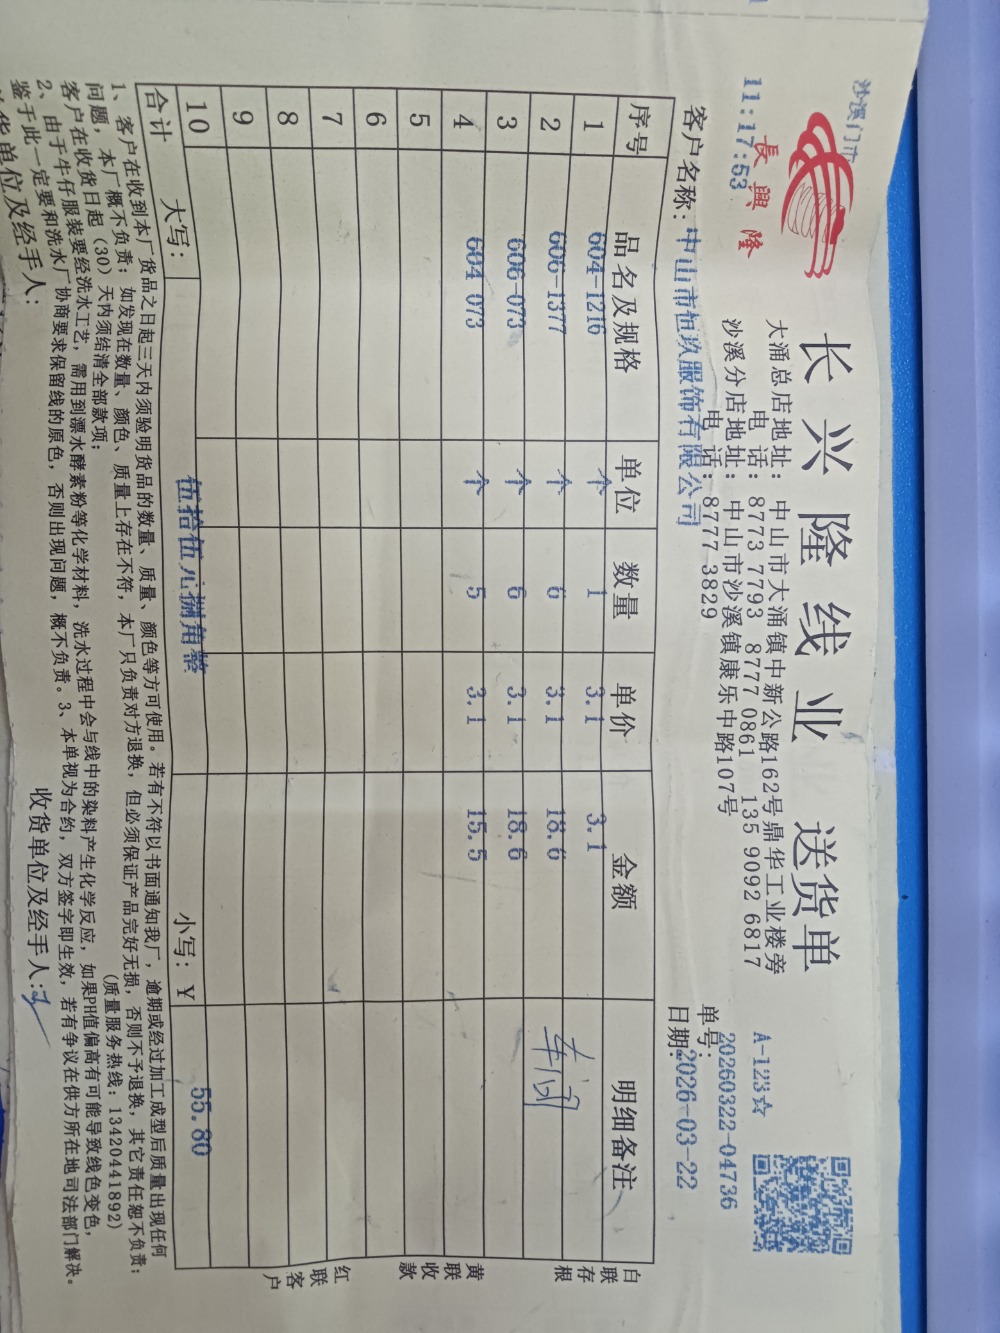 沙溪门市
11:17:53
長興隆
长兴隆线业 送货单
大涌总店地址: 中山市大涌镇中新公路162号鼎华工业楼旁
电 话: 8773 7793 8777 0861 135 9092 6817
沙溪分店地址: 中山市沙溪镇康乐中路107号
电 话: 8777 3829
A-123☆
单号: 20260322-04736
客户名称: 中山市恒玖服饰有限公司
日期: 2026-03-22
序号 品名及规格 单位 数量 单价 金额 明细备注
1 604-1216 个 1 3.1 3.1
2 606-1377 个 6 3.1 18.6
3 606-073 个 6 3.1 18.6
4 604 073 个 5 3.1 15.5
5
6
7
8
9
10
合计 大写: 伍拾伍元捌角整 小写: ¥ 55.80
白联存根
黄联收款
红联客户
1、客户在收到本厂货品之日起三天内须验明货品的数量、质量、颜色等方可使用。若有不符以书面通知我厂,逾期或经过加工成型后质量出现任何
问题,本厂概不负责;如发现在数量、颜色、质量上存在不符,本厂只负责对方退换,但必须保证产品完好无损,否则不予退换,其它责任恕不负责;
客户在收货日起(30)天内须结清全部款项; (质量服务热线:13420441892)
2、由于牛仔服装要经洗水工艺,需用到漂水酵素粉等化学材料,洗水过程中会与线中的染料产生化学反应,如果PH值偏高有可能导致线色变色,
鉴于此一定要和洗水厂协商要求保留线的原色,否则出现问题,概不负责。3、本单视为合约,双方签字即生效,若有争议在供方所在地司法部门解决。
货单位及经手人: 收货单位及经手人: